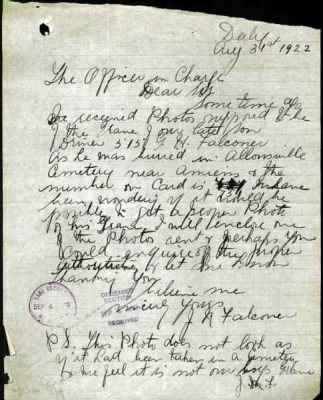 Aug 31st 1922
The Officer in Charge
Dear Sir
Some time ago
we received Photos supposed to be
of the Grave of our late Son
Driver 5151 J. H. Falconer
As he was buried in Allonville
Cemetery near Amiens & the
number on Card is
been wondering if it would be
possible to get a proper Photo
of his Grave I will enclose one
of the Photos sent & perhaps you
could enquire of the proper
authorities & let me know
Thanking you
believe me
yours
Falconer
BASE RECORDS
SEP 4
DECEASED
SECTION
RECEIVED
P.S. This Photo does not look as
if it had been taken in a Cemetery
to me feel it is not our boys Grave